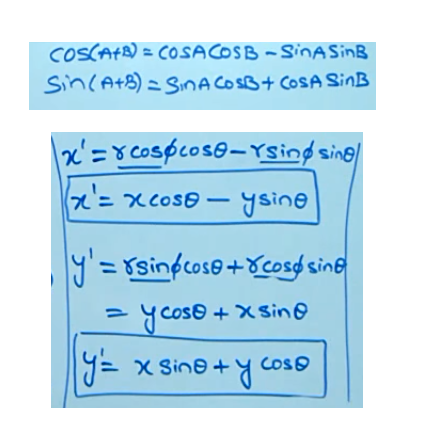 cos(A+B) = cosA cosB - sinA sinB
Sin(A+B) = SinA CosB + CosA SinB
x' = r cosϕ cosθ - r sinϕ sinθ
x' = x cosθ - y sinθ
y' = r sinϕ cosθ + r cosϕ sinθ
= y cosθ + x sinθ
y' = x sinθ + y cosθ